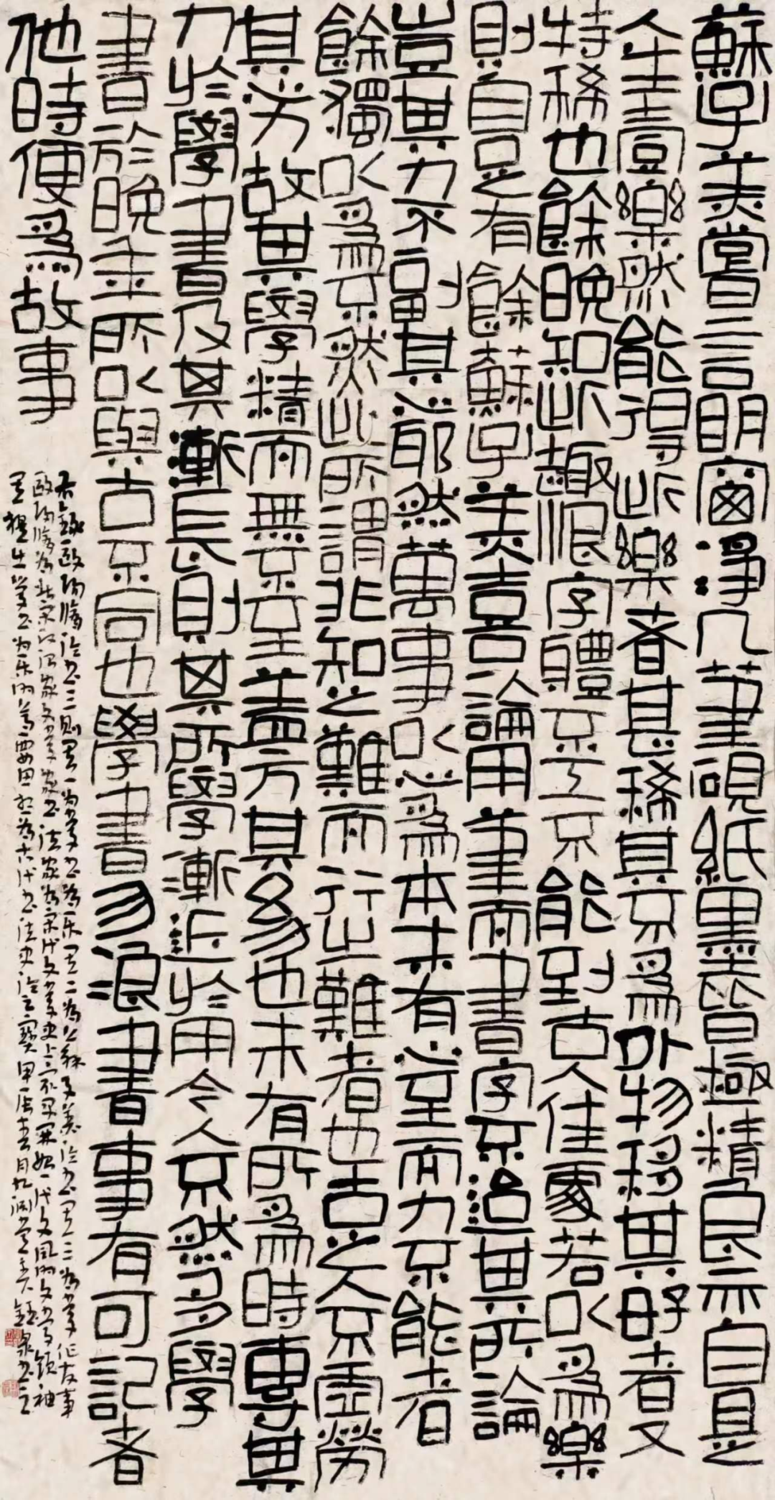 蘇子美嘗言明窗淨几筆硯紙墨皆極精良亦自是
人生壹樂然能得此樂者甚稀其不為外物移其好者又
特稀也餘晚知此趣恨字體不工不能到古人佳處若以為樂
則自足有餘蘇子美喜論用筆而書字不迨其所論
豈其力不副其心耶然萬事以心為本未有心至而力不能者
餘獨以為不然此所謂非知之難而行之難者也古之人不虛勞
其心力故其學精而無不至蓋方其幼也未有所為時專其
力於學書及其漸長則其所學漸近於用今人不然多學
書於晚年所以與古不同也學書勿浪書事有可記者
他時便為故事
右錄歐陽脩論書三則其一為學書為樂其二為蘇子美論書其三為學作故事
歐陽脩為北宋